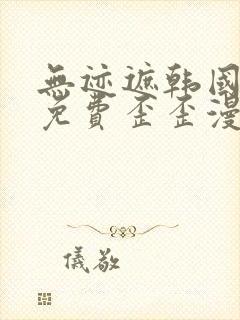 無迹遮韩國
免費歪歪漫
儀敬